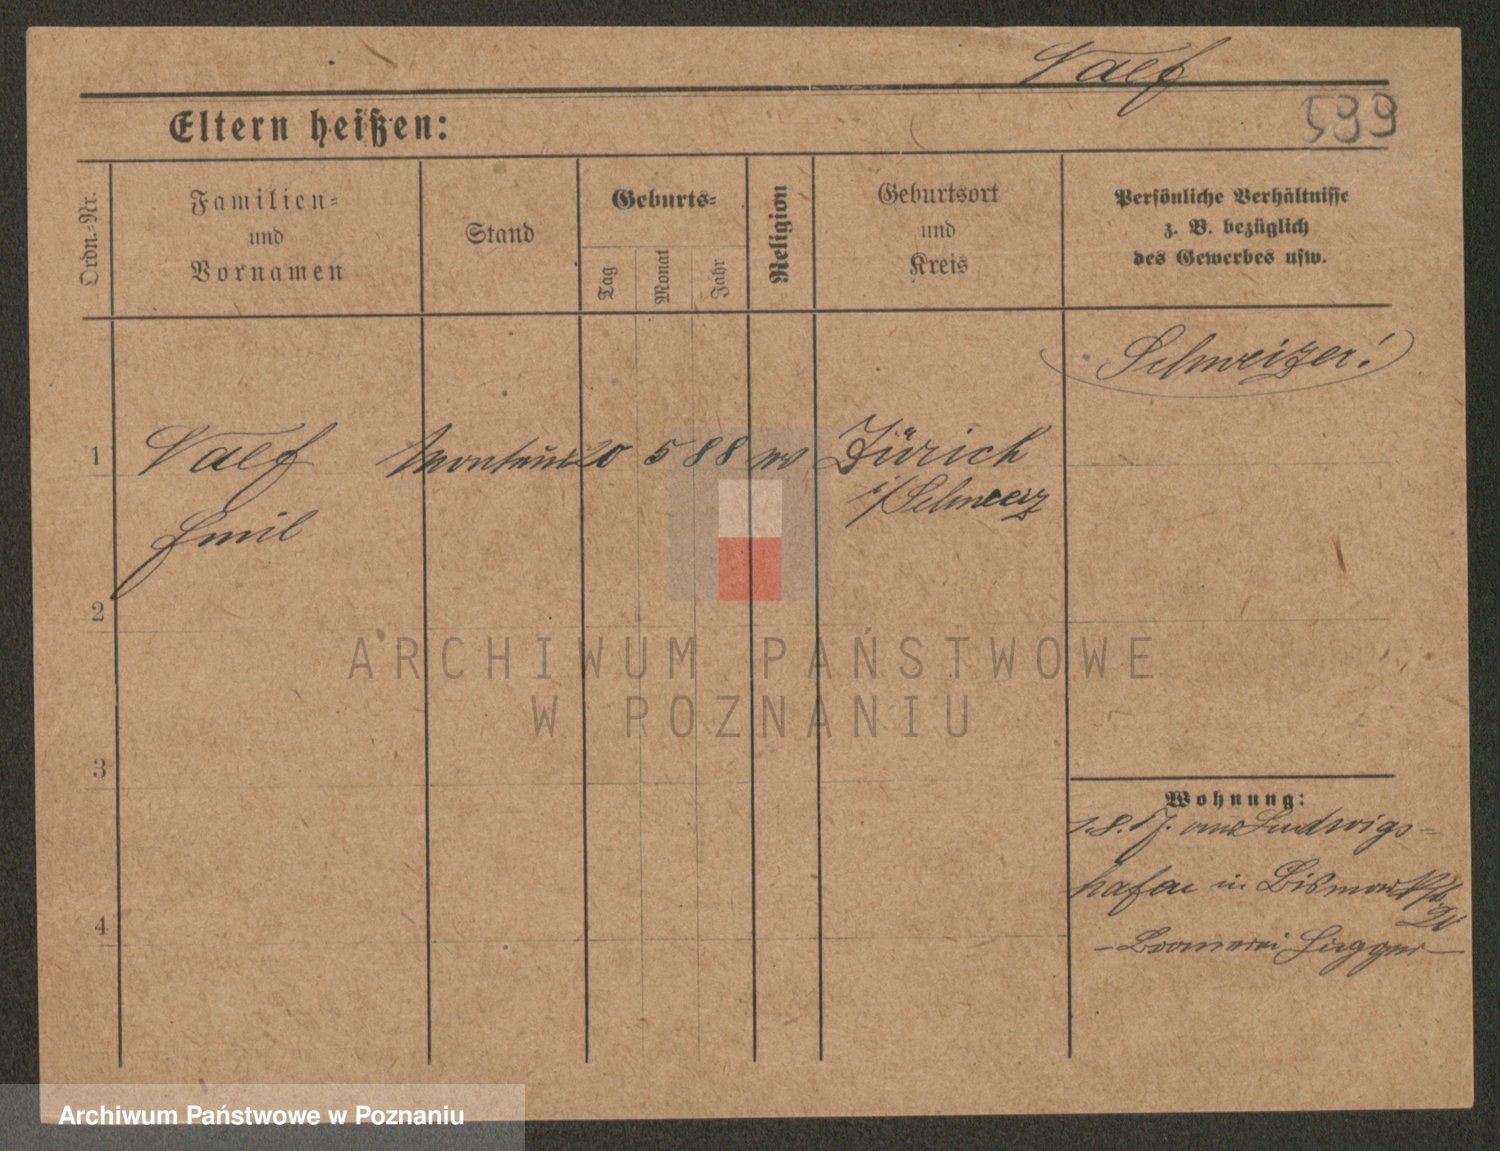 Naef
599
Eltern heißen:
Ordn.-Nr.
Familien-
und
Vornamen
Stand
Geburts-
Tag
Monat
Jahr
Religion
Geburtsort
und
Kreis
Persönliche Verhältnisse
z. B. bezüglich
des Gewerbes usw.
Schweizer!
1
Naef
Monteur
20 5 88
Zürich
Emil
i/Schweiz
2
3
4
Wohnung:
1.8.17. aus Ludwigs-
hafen in Bismarckstr.
- Brauerei Hugger -
ARCHIWUM PAŃSTWOWE
W POZNANIU
Archiwum Państwowe w Poznaniu